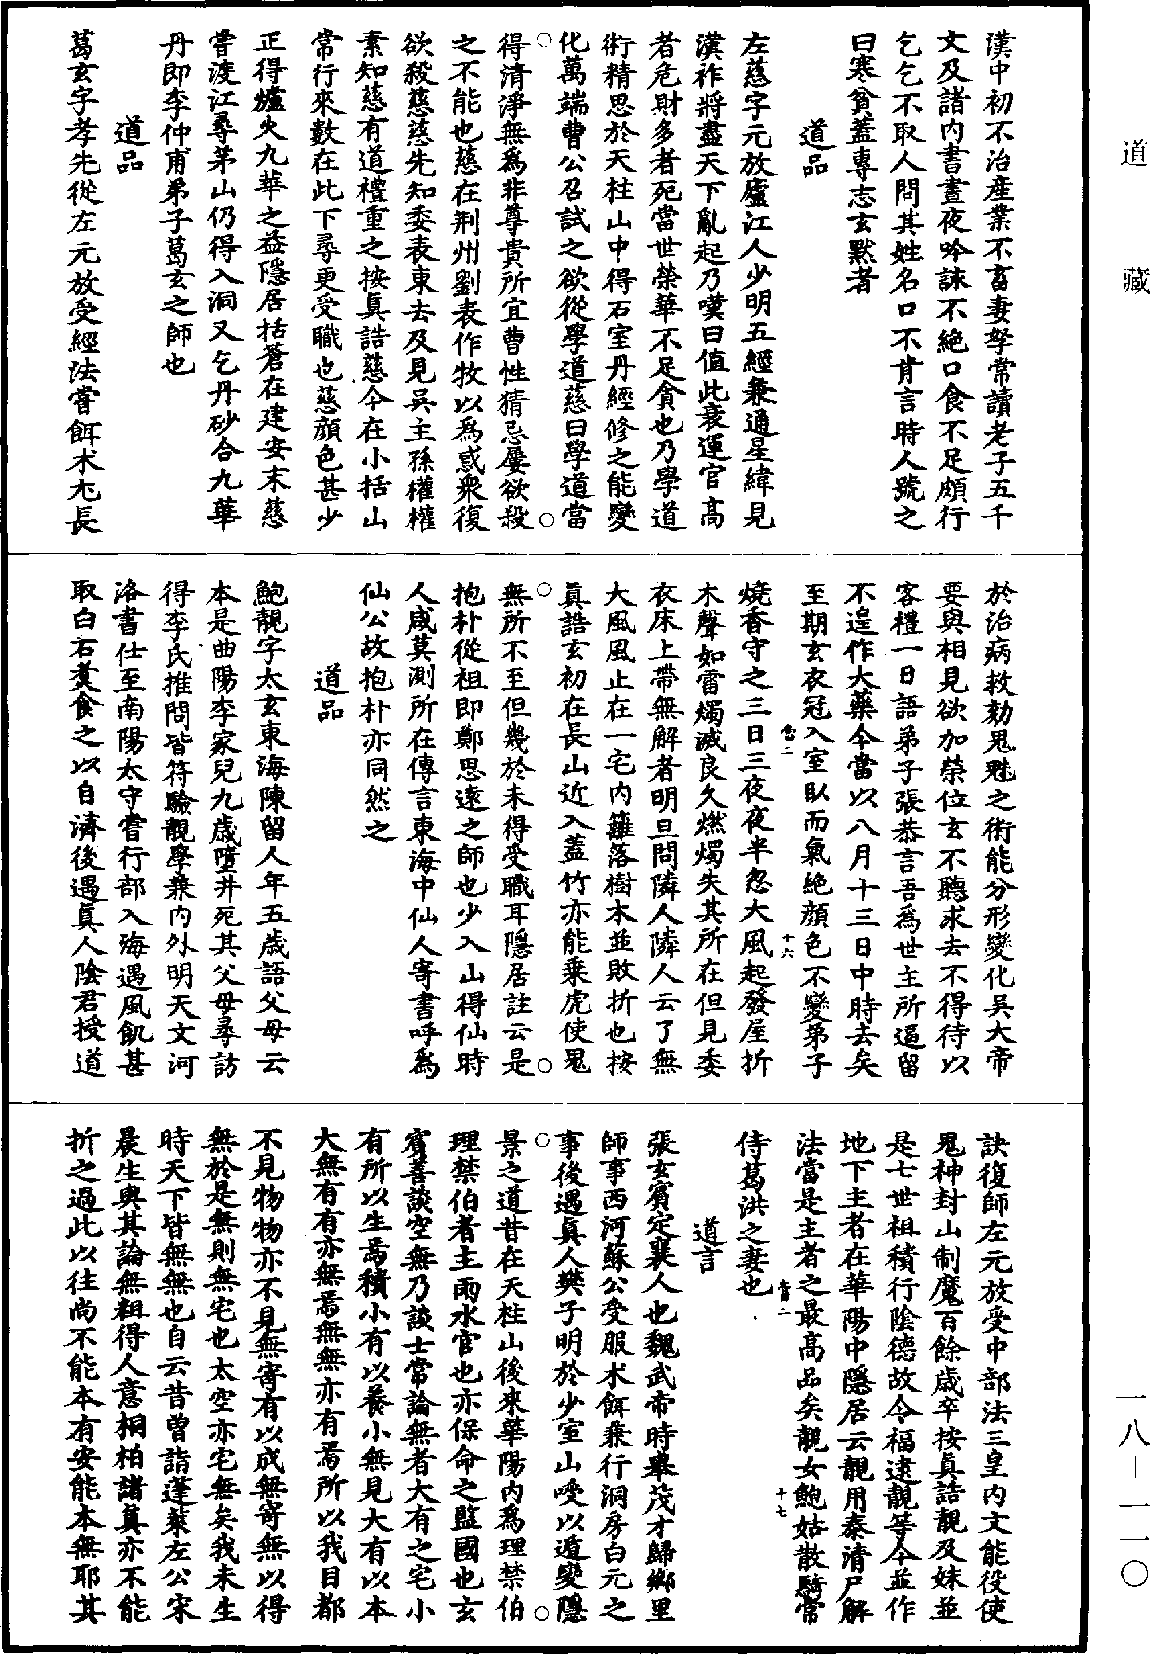 漢中初不治產業不畜妻孥常讀老子五千
文及諸內書晝夜吟誦不絕口食不足頗行
乞乞不取人問其姓名口不肯言時人號之
曰寒貧蓋專志玄默者
道品
左慈字元放廬江人少明五經兼通星緯見
漢祚將盡天下亂起乃嘆曰值此衰運官高
者危財多者死當世榮華不足貪也乃學道
術精思於天柱山中得石室丹經修之能變
化萬端曹公召試之欲從學道慈曰學道當
得清淨無為非尊貴所宜曹性猜忌屢欲殺
之不能也慈在荆州劉表作牧以為惑眾復
欲殺慈慈先知委表東去及見吳主孫權權
素知慈有道禮重之按真誥慈今在小括山
常行來數在此下尋更受職也慈顏色甚少
正得爐火九華之益隱居括蒼在建安末慈
嘗渡江尋茅山仍得入洞又乞丹砂合九華
丹即李仲甫弟子葛玄之師也
道品
葛玄字孝先從左元放受經法嘗餌朮尤長
於治病救劾鬼魅之術能分形變化吳大帝
要與相見欲加榮位玄不聽求去不得待以
客禮一日語弟子張恭言吾為世主所逼留
不遑作大藥今當以八月十三日中時去矣
至期玄衣冠入室臥而氣絕顏色不變弟子
燒香守之三日三夜夜半忽大風起發屋折
木聲如雷燭滅良久燃燭失其所在但見委
衣床上帶無解者明旦問隣人隣人云了無
大風風止在一宅內籬落樹木並敗折也按
真誥玄初在長山近入蓋竹亦能乘虎使鬼
無所不至但幾於未得受職耳隱居註云是
抱朴從祖即鄭思遠之師也少入山得仙時
人咸莫測所在傳言東海中仙人寄書呼為
仙公故抱朴亦同然之
道品
鮑靚字太玄東海陳留人年五歲語父母云
本是曲陽李家兒九歲墮井死其父母尋訪
得李氏推問皆符驗靚學兼內外明天文河
洛書仕至南陽太守嘗行部入海遇風飢甚
取白石煑食之以自濟後遇真人陰君授道
訣復師左元放受中部法三皇內文能役使
鬼神封山制魔百餘歲卒按真誥靚及妹並
是七世祖積行陰德故令福逮靚等今並作
地下主者在華陽中隱居云靚用泰清尸解
法當是主者之最高品矣靚女鮑姑散騎常
侍葛洪之妻也
道言
張玄賓定襄人也魏武帝時舉茂才歸鄉里
師事西河蘇公受服朮餌兼行洞房白元之
事後遇真人樊子明於少室山受以遁變隱
景之道昔在天柱山後來華陽內為理禁伯
理禁伯者主雨水官也亦保命之監國也玄
賓善談空無乃談士常論無者大有之宅小
有所以生焉積小有以養小無見大有以本
大無有有亦無焉無無亦有焉所以我目都
不見物物亦不見無寄有以成無寄無以得
無於是無則無宅也太空亦宅無矣我未生
時天下皆無無也自云昔曾詣蓬萊左公宋
晨生與其論無粗得人意桐柏諸真亦不能
折之過此以往尚不能本有安能本無耶其
道藏
一八—一一〇